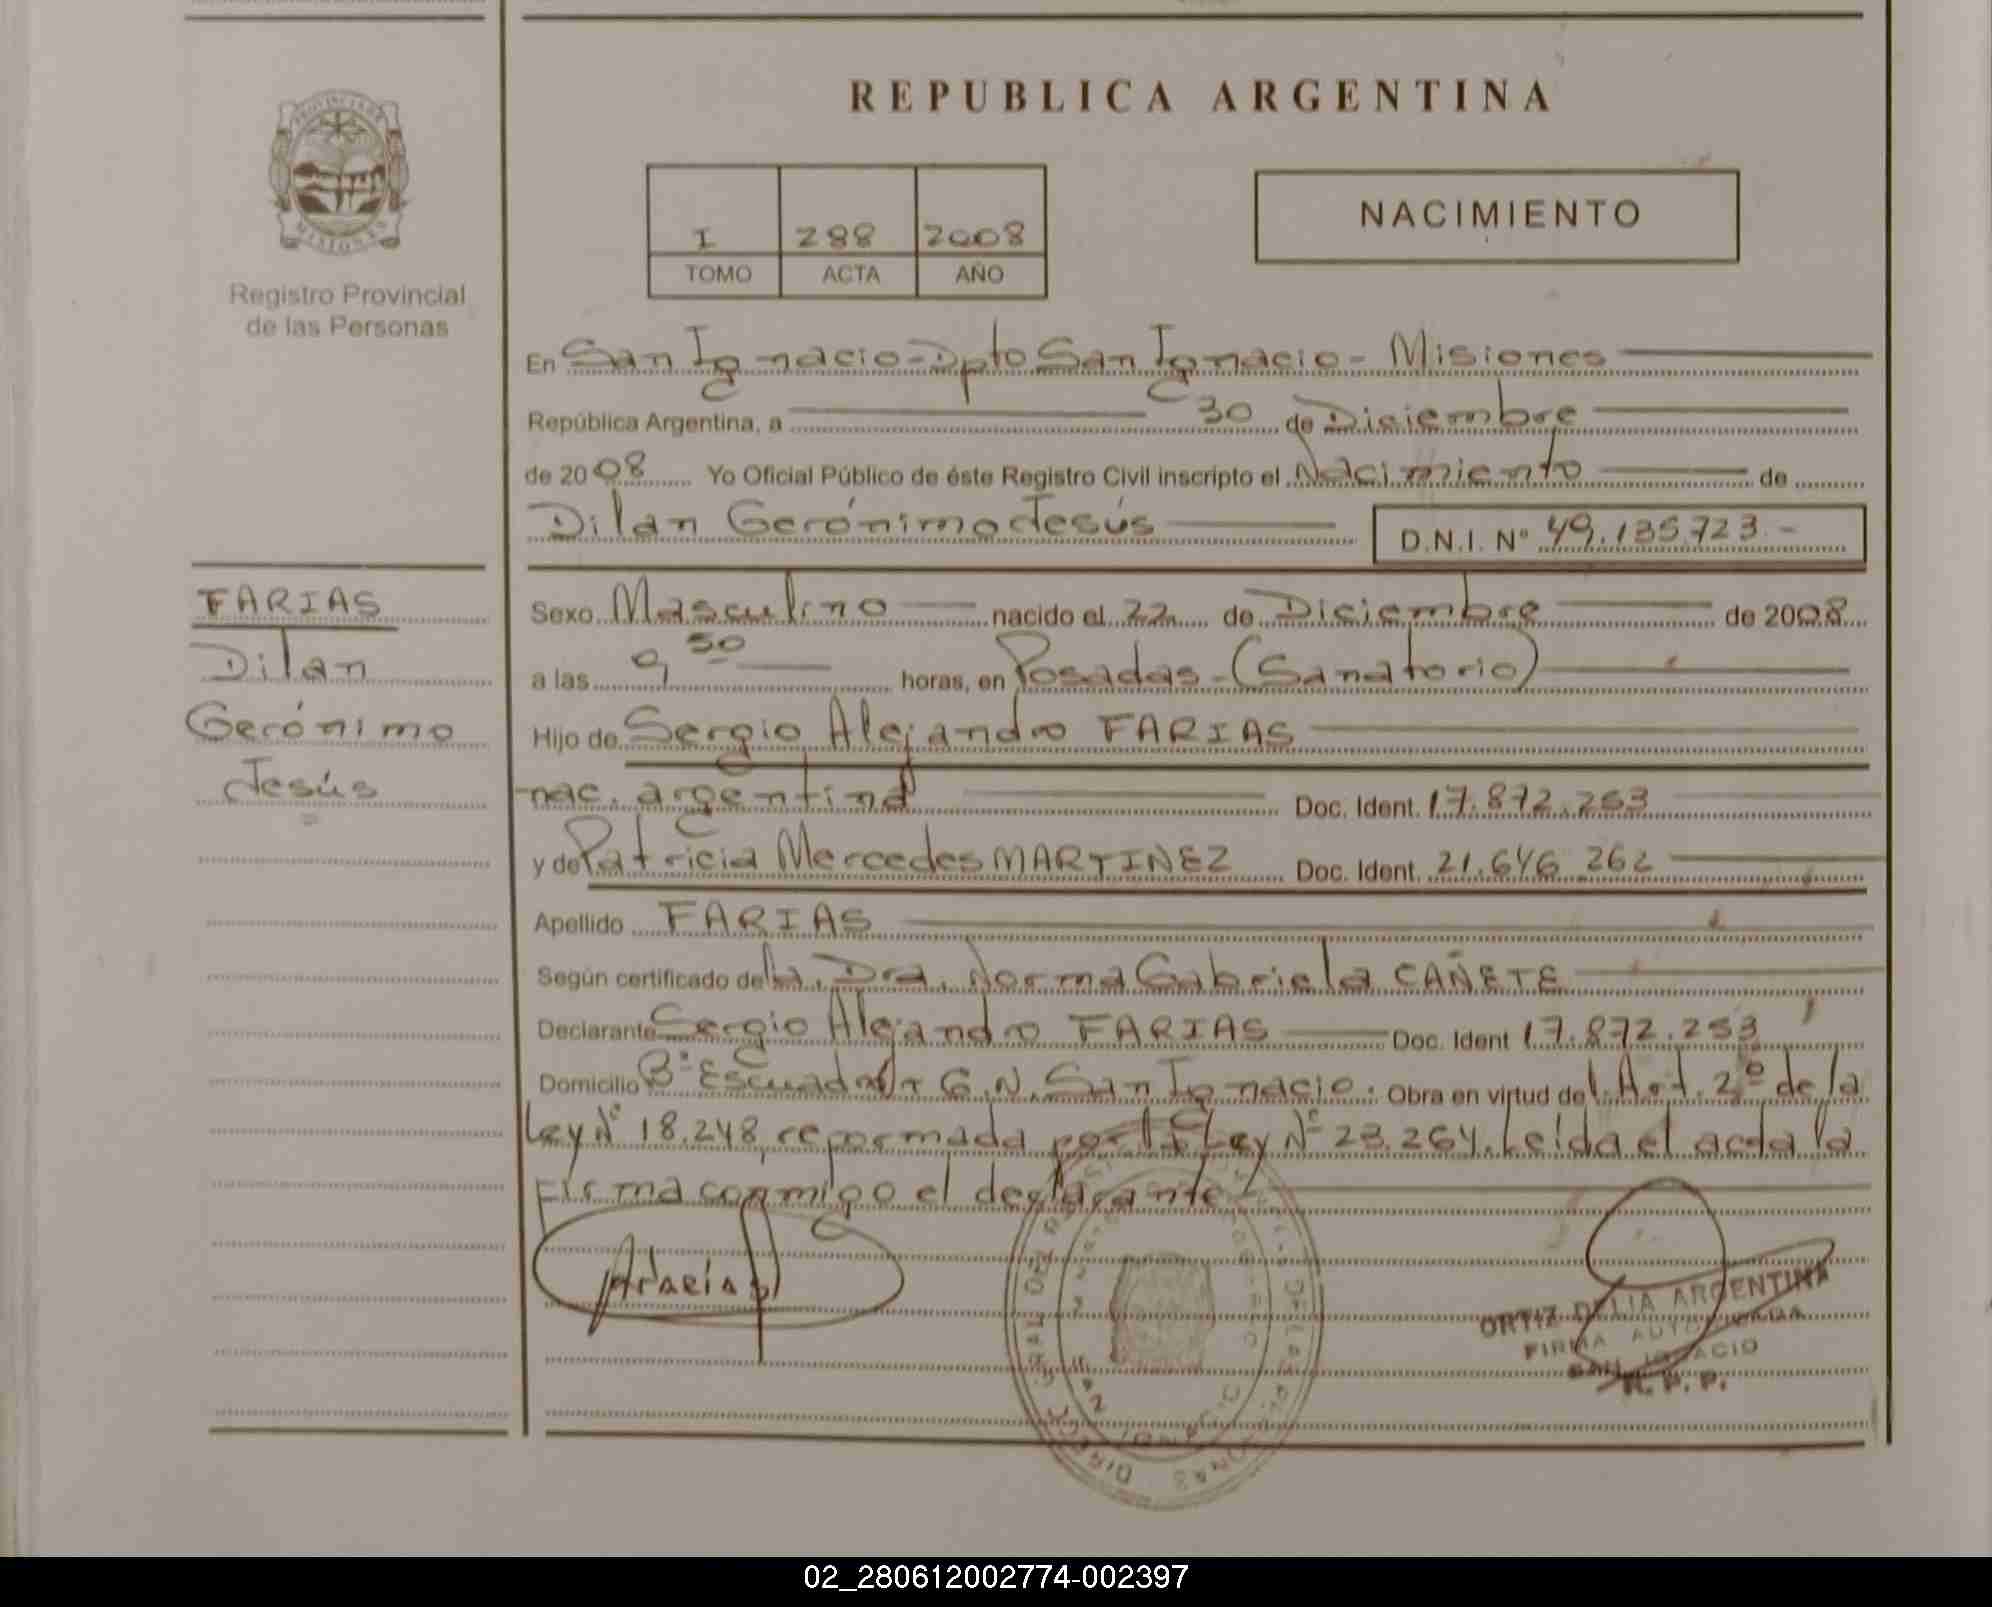 PROVINCIA DE
MISIONES
Registro Provincial
de las Personas
FARIAS
Dilan
Gerónimo
Jesús
REPUBLICA ARGENTINA
I 288 2008
TOMO ACTA AÑO
NACIMIENTO
En San Ignacio - Dpto San Ignacio - Misiones
República Argentina, a 30 de Diciembre
de 2008 Yo Oficial Público de éste Registro Civil inscripto el Nacimiento de
Dilan Gerónimo Jesús D.N.I. Nº 49.135.723.-
Sexo Masculino nacido el 22 de Diciembre de 2008
a las 9 30 horas, en Posadas - (Sanatorio)
Hijo de Sergio Alejandro FARIAS
nac. argentina Doc. Ident. 17.872.253
y de Patricia Mercedes MARTINEZ Doc. Ident. 21.646.262
Apellido FARIAS
Según certificado de la Dra. Norma Gabriela CAÑETE
Declarante Sergio Alejandro FARIAS Doc. Ident 17.872.253
Domicilio Bº Escuadrón G.N. San Ignacio. Obra en virtud del Art. 2º de la
Ley Nº 18.248, reformada por la Ley Nº 23.264. Leída el acta la
Firma conmigo el declarante
ORTIZ DELIA ARGENTINA
FIRMA AUTORIZADA
SAN IGNACIO
R. P. P.
02_280612002774-002397